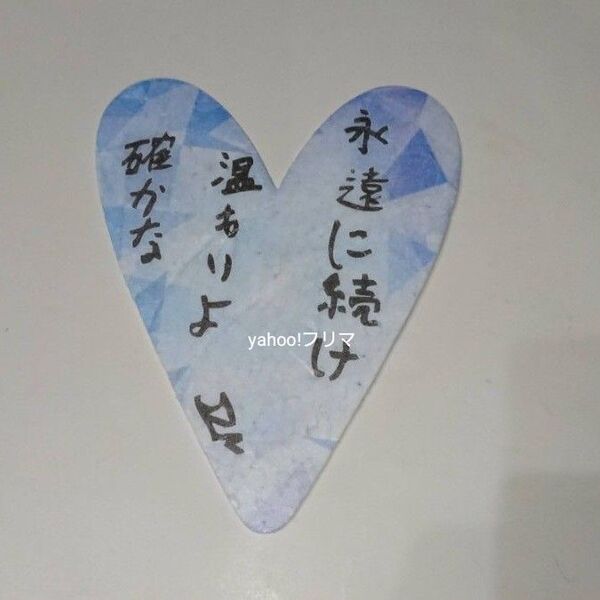 永遠に続け
温もりよ
確かな
yahoo!フリマ